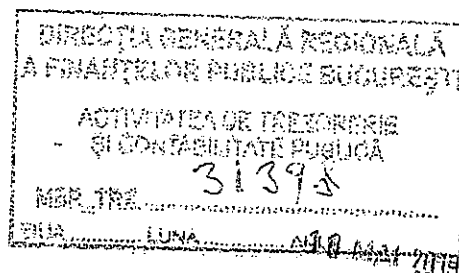 DIRECȚIA GENERALĂ REGIONALĂ
A FINANȚELOR PUBLICE BUCUREȘTI
ACTIVITATEA DE TREZORERIE
ȘI CONTABILITATE PUBLICĂ
MBR_TRZ
ZIUA LUNA